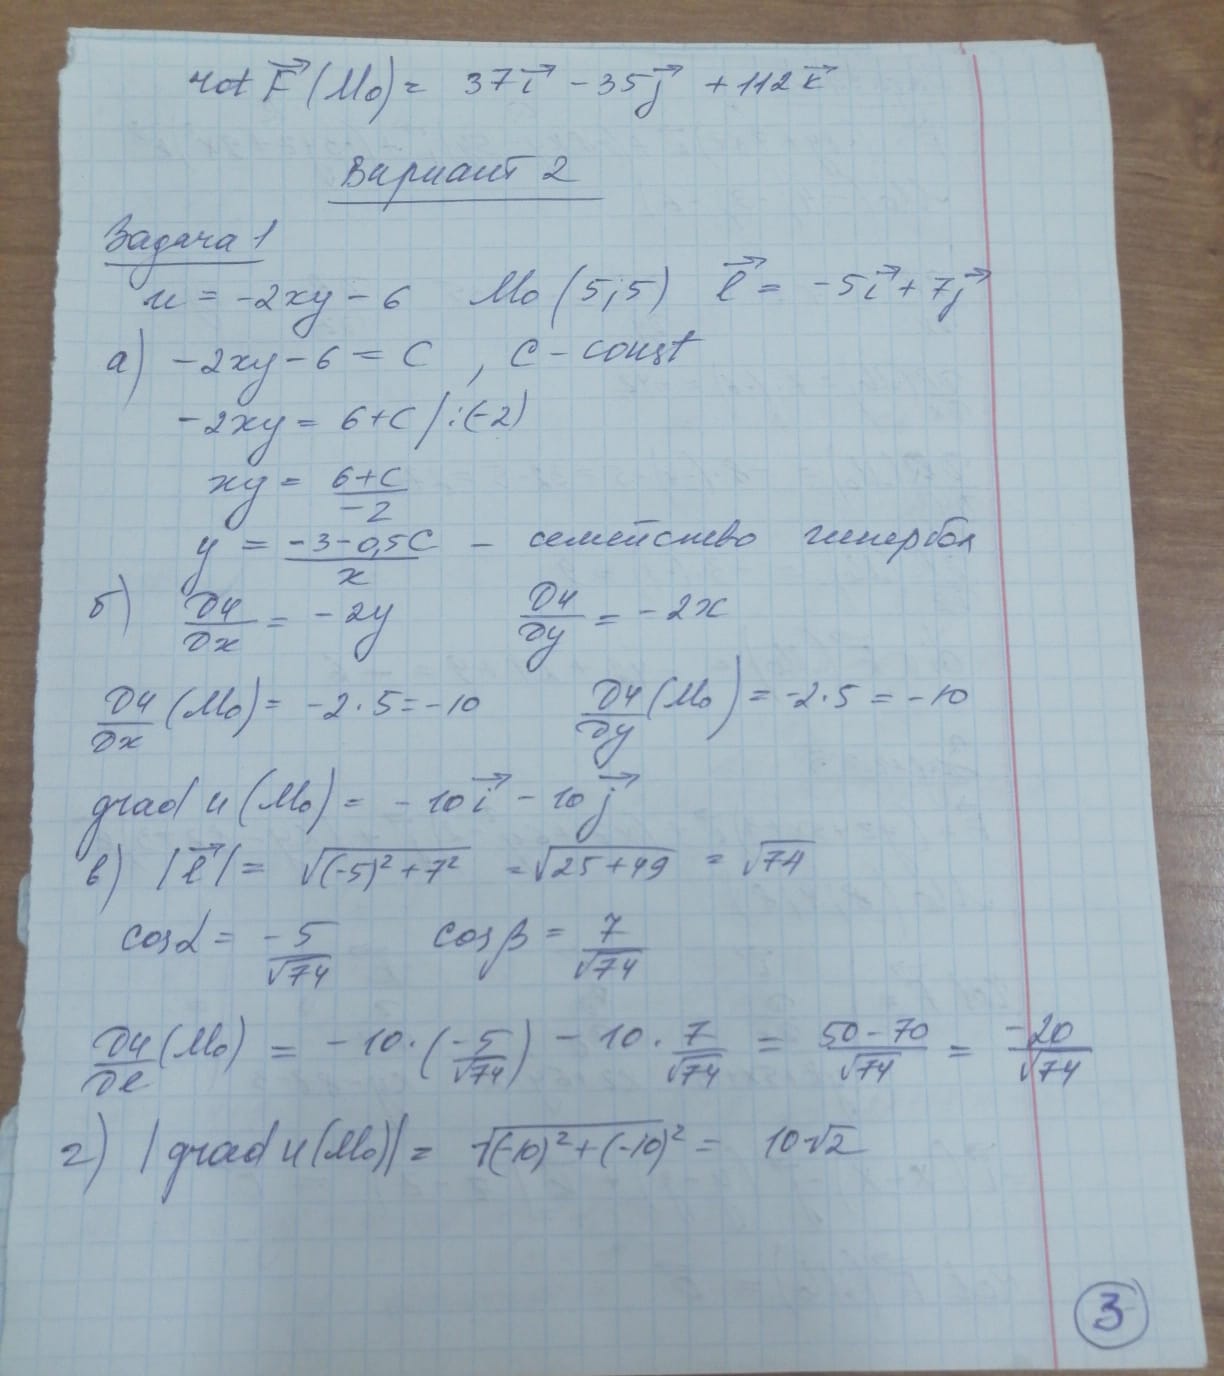 rot F⃗ (M₀) = 37i⃗ - 35j⃗ + 112k⃗
Вариант 2
Задача 1
u = -2xy - 6 M₀ (5;5) l⃗ = -5i⃗ + 7j⃗
а) -2xy - 6 = C , C - const
-2xy = 6+C / :(-2)
xy = (6+C)/(-2)
y = (-3-0,5C)/x - семейство гипербол
б) ∂u/∂x = -2y ∂u/∂y = -2x
∂u/∂x (M₀) = -2·5 = -10 ∂u/∂y (M₀) = -2·5 = -10
grad u (M₀) = -10i⃗ - 10j⃗
в) |l⃗| = √((-5)² + 7²) = √(25+49) = √74
cosα = -5/√74 cosβ = 7/√74
∂u/∂l (M₀) = -10·(-5/√74) - 10·7/√74 = (50-70)/√74 = -20/√74
г) |grad u (M₀)| = √((-10)² + (-10)²) = 10√2
3